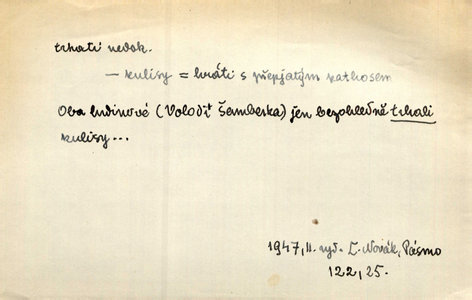 trhati nedok.
— kulisy = hráti s přepjatým pathosem
Oba hrdinové (Volodit Šemberka) jen bezohledně trhali
kulisy...
1947, II. vyd. L. Novák, Pásmo
122, 25.